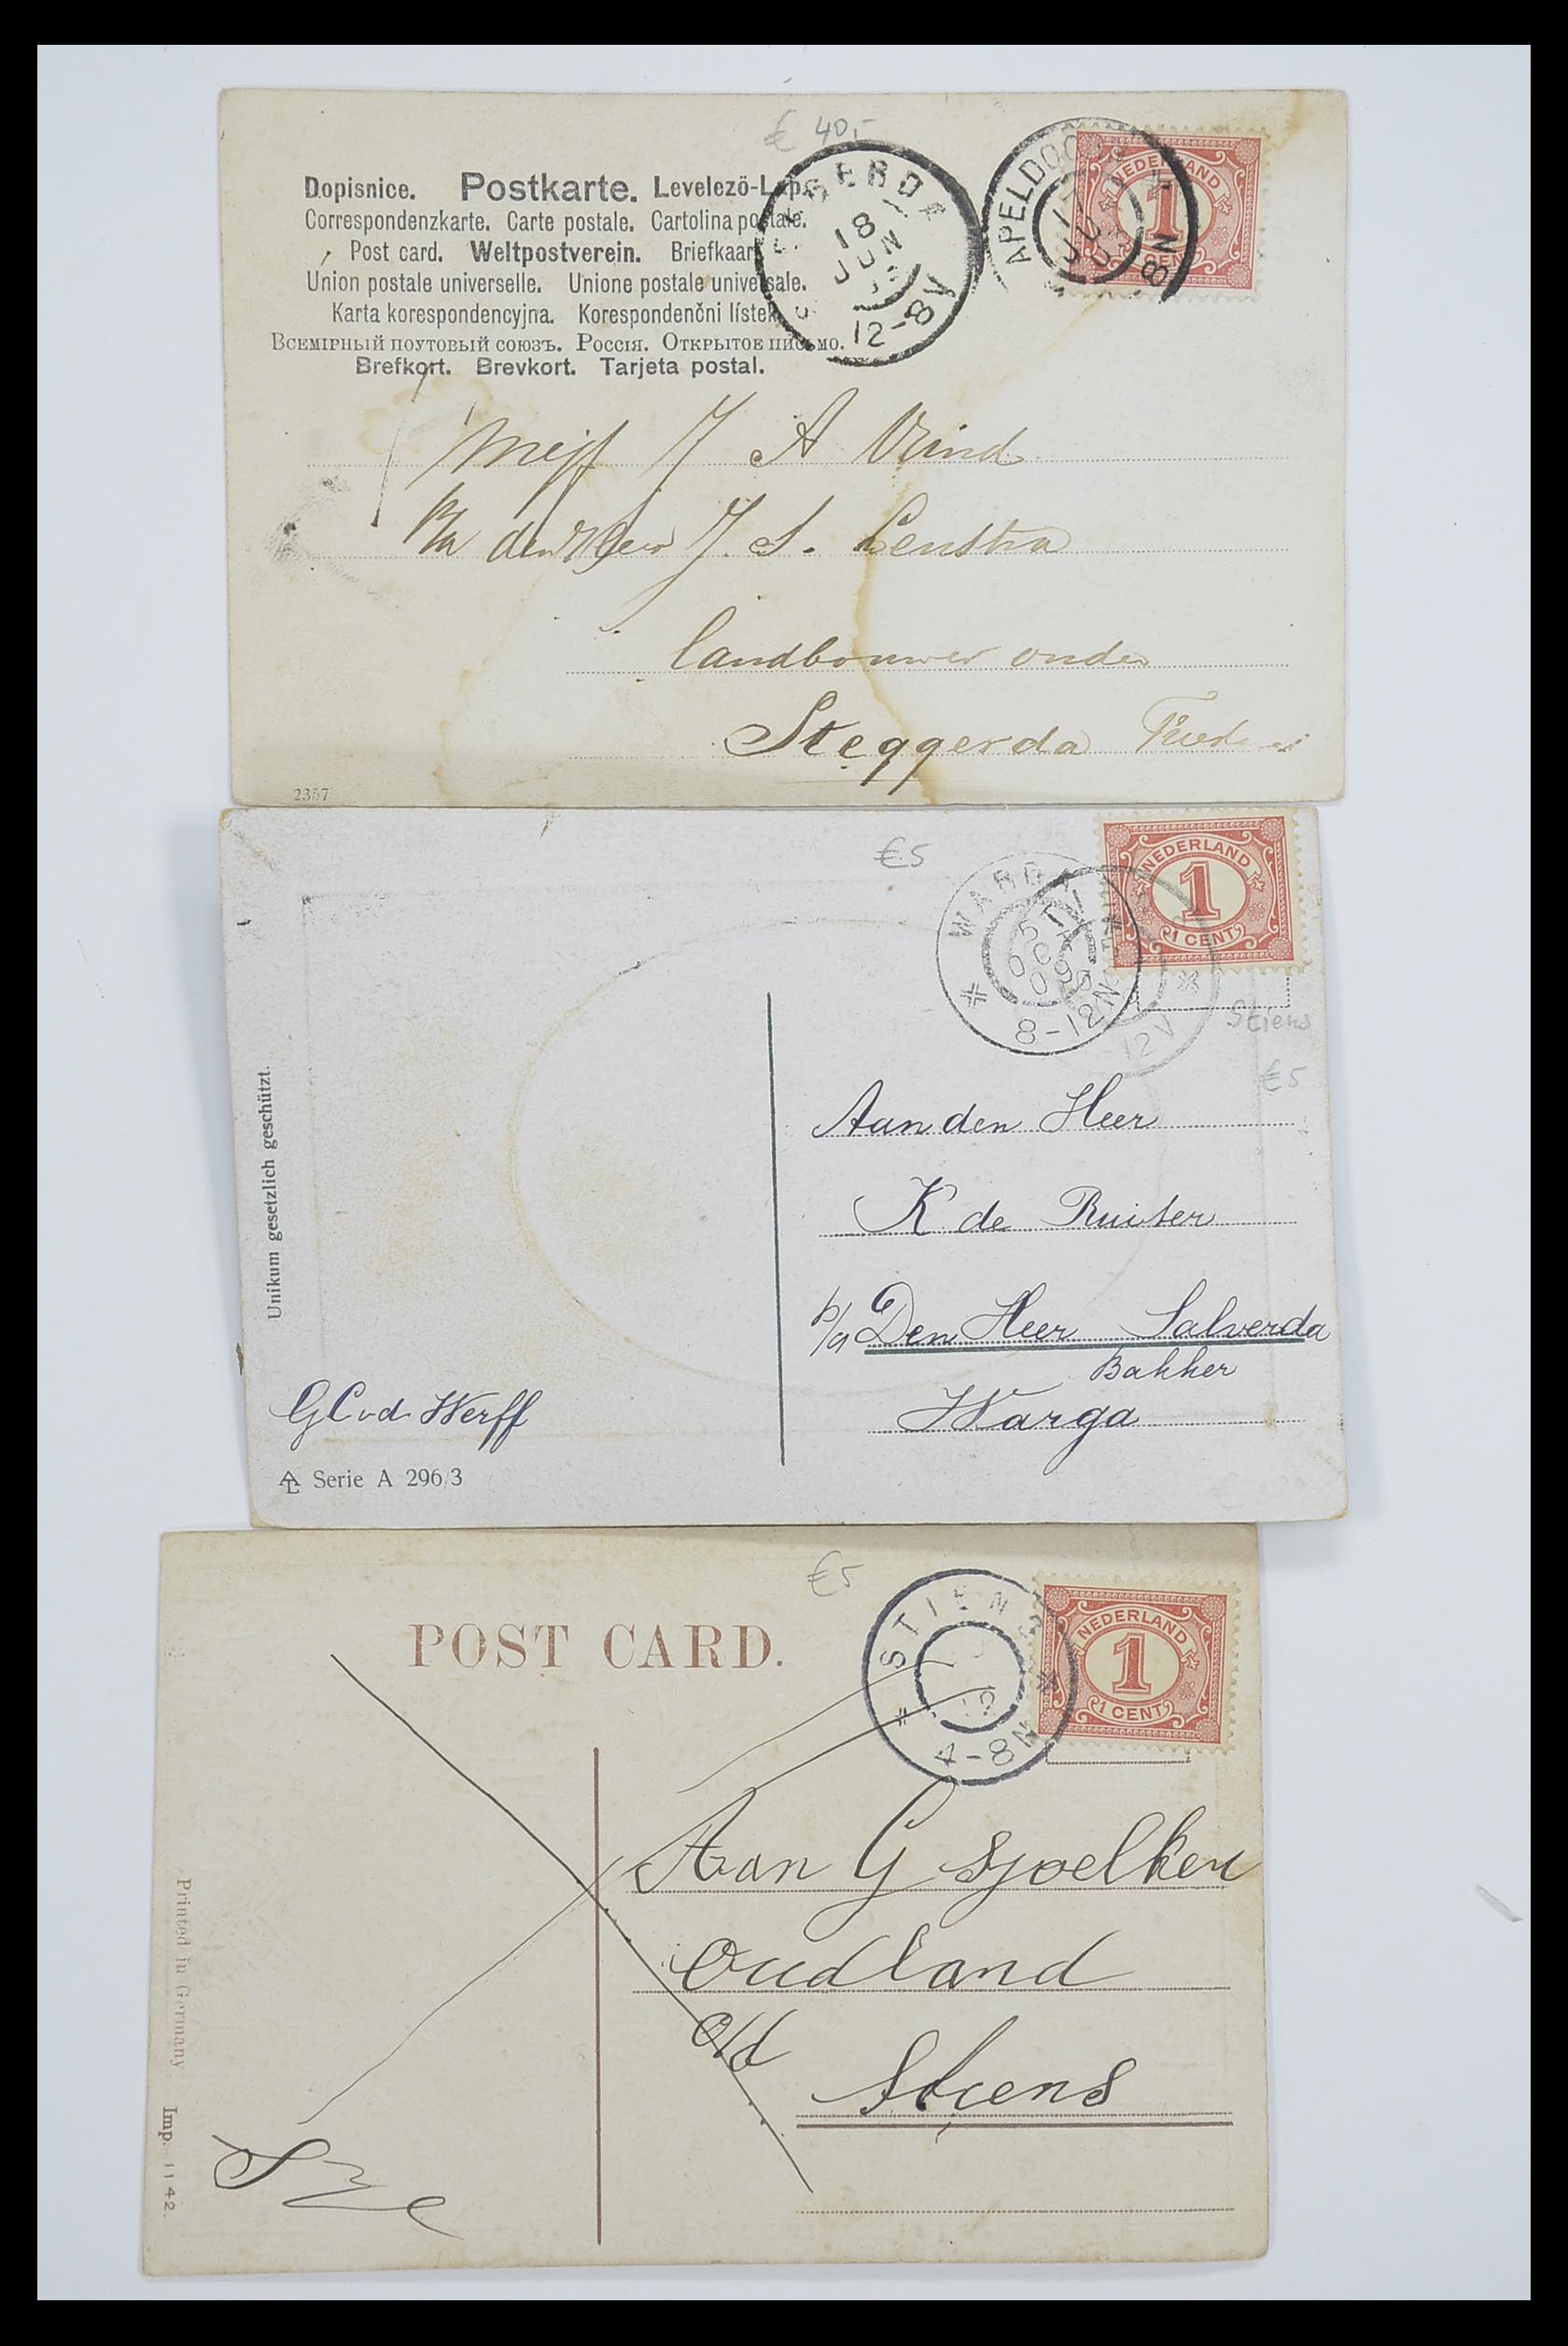 € 40,-
Dopisnice. Postkarte. Levelező-Lap.
Correspondenzkarte. Carte postale. Cartolina postale.
Post card. Weltpostverein. Briefkaart
Union postale universelle. Unione postale universale.
Karta korespondencyjna. Korespondenčni lístek
Всемірный поутовый союзъ. Россія. Открытое письмо.
Brefkort. Brevkort. Tarjeta postal.
18
JUN
12-8V
APELDOO
JUN
-8N
NEDERLAND
1
CENT
Mejf J A Vrind
p/a den Heer J. S. Lenstra
landbouwer onder
Steggerda
2357
€5
WARGA
15
OCT
09
8-12N
12V
NEDERLAND
1
1 CENT
Stiens
€5
Unikum gesetzlich geschützt.
Aan den Heer
K de Ruiter
p/a Den Heer Salverda
Bakker
Warga
G C v d Werff
Serie A 296/3
€5
POST CARD.
STIENS
12
4-8N
NEDERLAND
1
1 CENT
Aan G Sjoelken
Oudland
o/d
Stiens
Printed in Germany Imp. 1142.